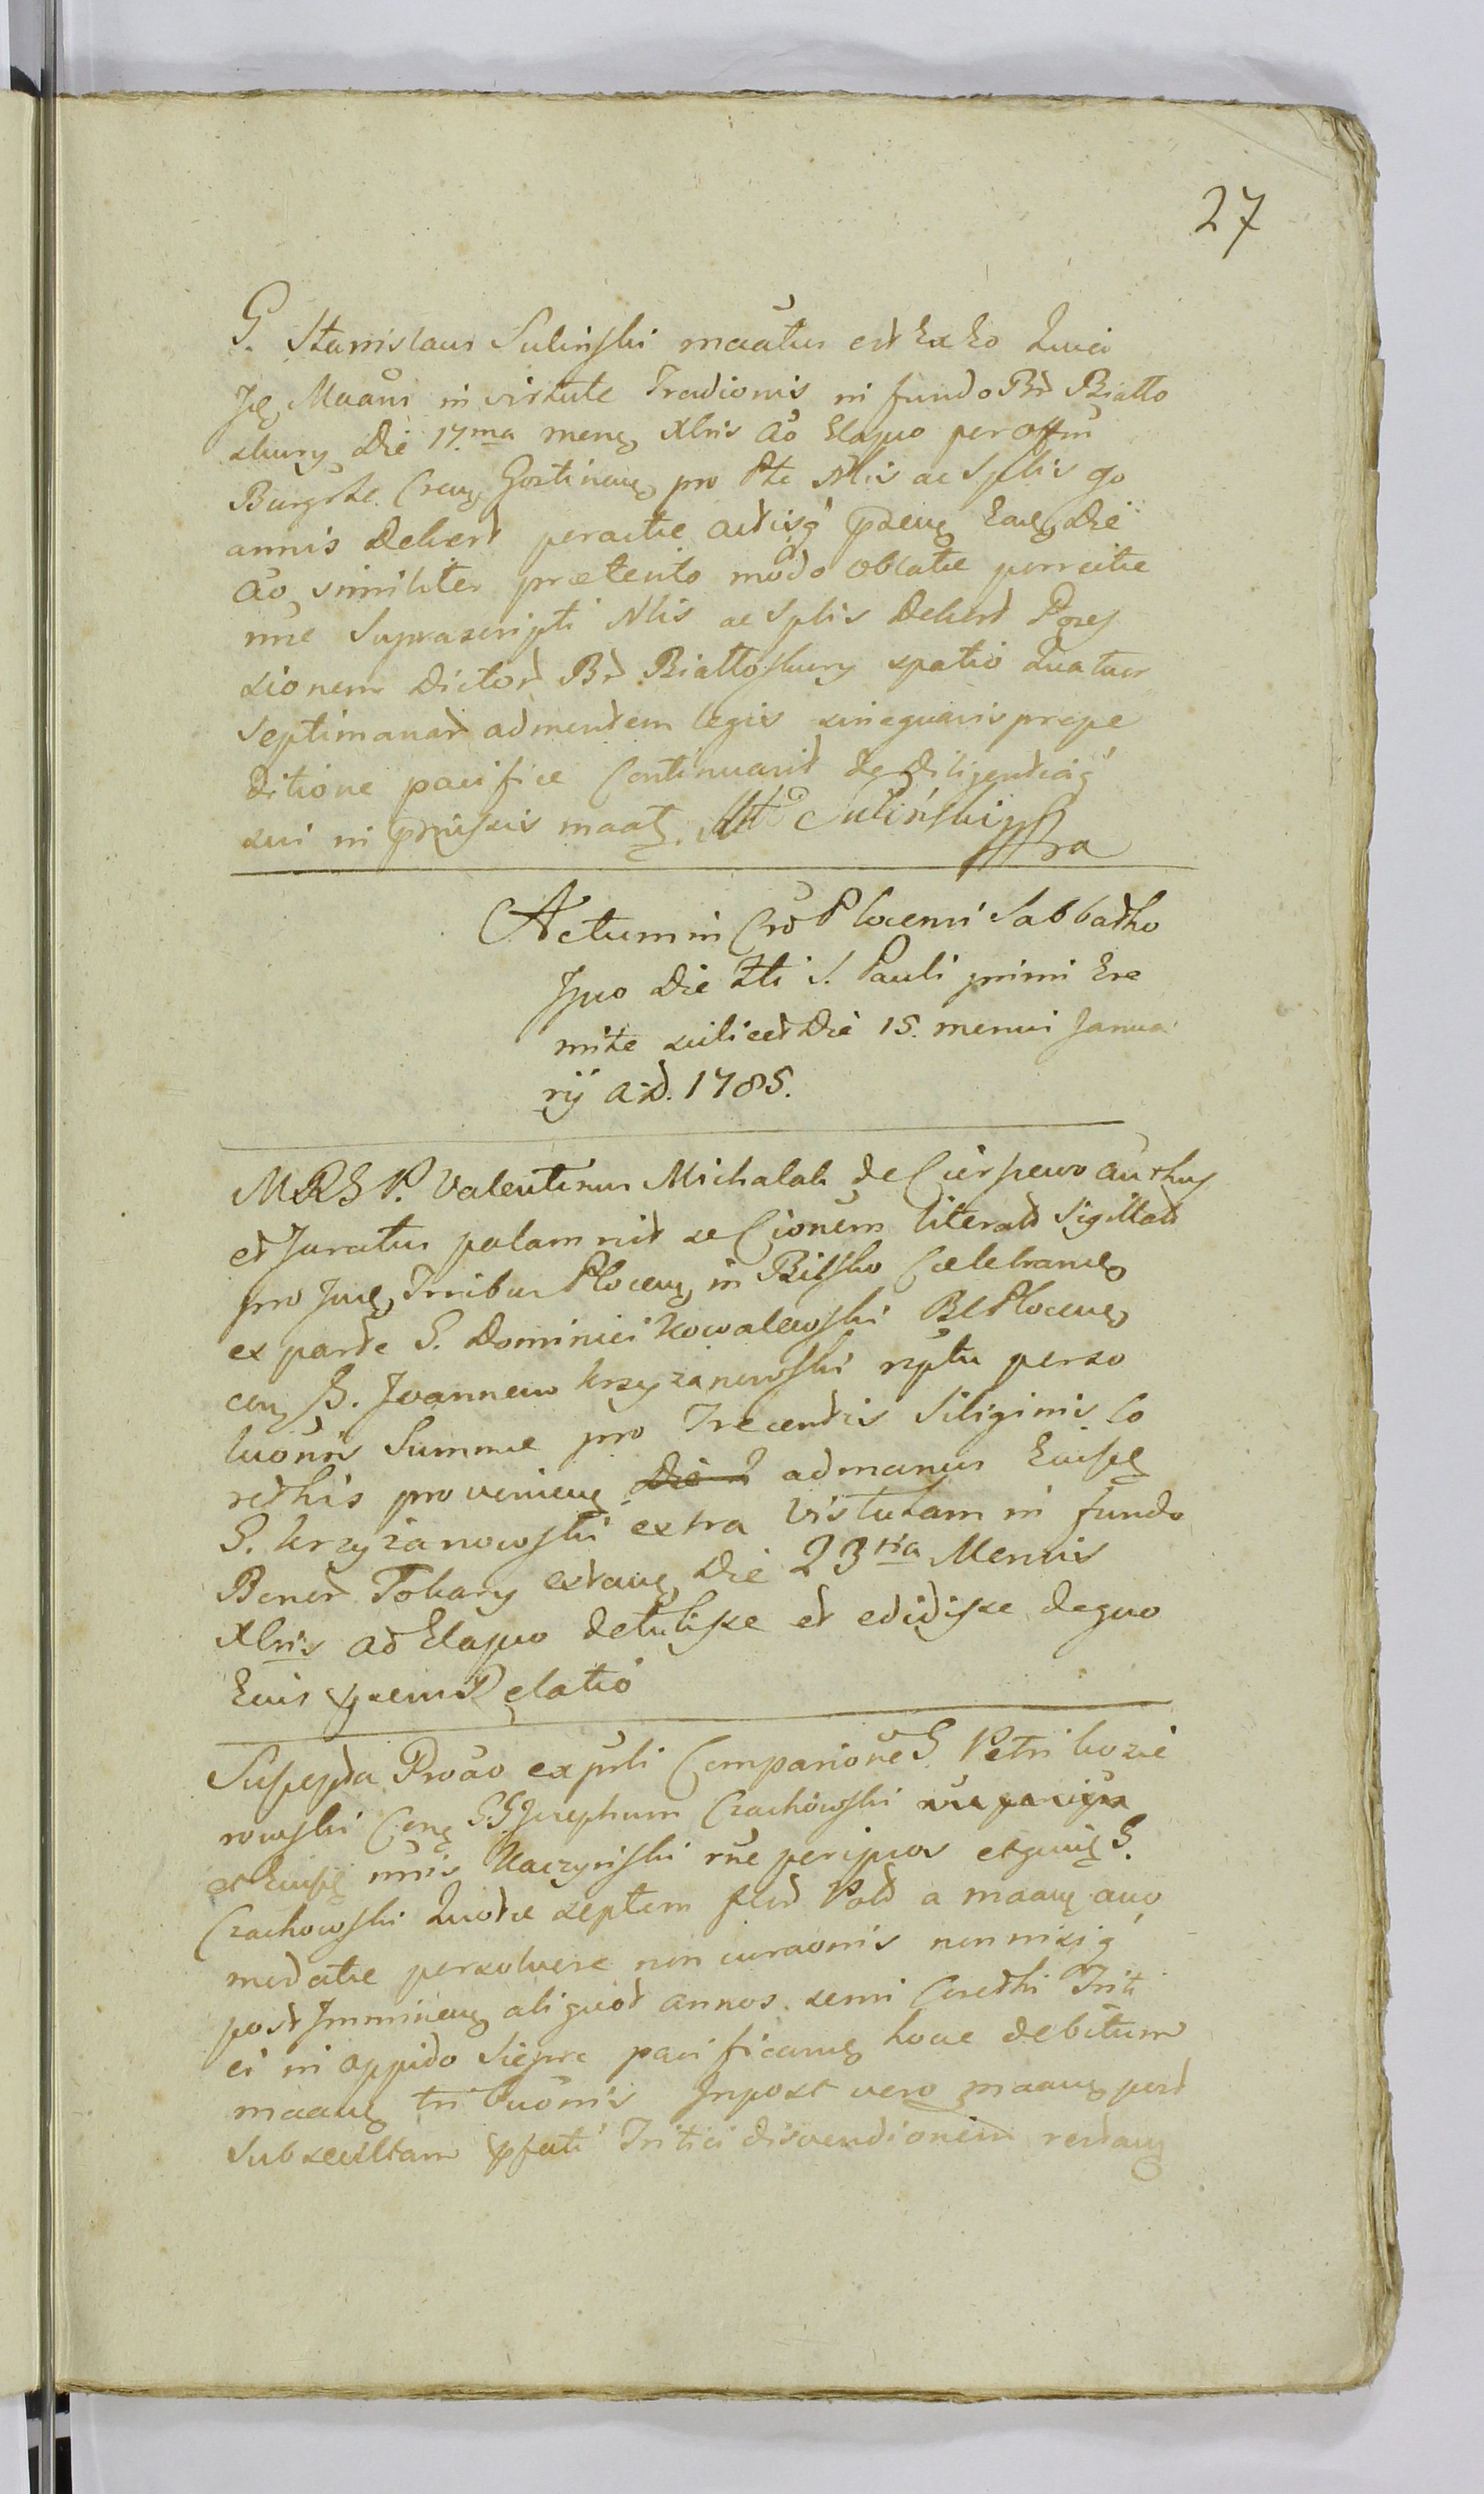 27
G. Stanislaus Suliński maãtur est Ex Eo Quia
Ipse Maãns in virtute Tradionis in fundo Br Białło
skury Die 17.ma mens Xbris ão Elapso per offm
Burgste Crens Gostinens pro Pte Nlis ac Splis Go
annis Dekert peractæ actisq præns Eæ Die
ão, similiter prætento modo oblatæ porrectæ
nne Suprascripti Nlis ac Splis Dekert Posses
sionem Dictor Br Białłoskury spatio Quatuor
Septimanar ad mentem legis sine quavis præpe
ditione pacifice Continuavit de Diligentiaq
sui in præmissis maat. Suliński
Actum in Cro Plocensi Sabbatho
Ipso Die Fti S. Pauli primi Ere
mitæ scilicet Die 15. mensis Janua
rij a. D. 1785.
MRGP. Valentinus Michalak de Cierszewo auths
et Juratus palam rit se Cionem literar Sigillar
pro Jud Trribus Plocens in Bilsko Celebrans
ex parte G. Dominici Kowalewski BLPlocens
con G. Joannem Krzyzanowski rptu perso
luonis Summæ pro Trecentis Siliginis Co
rethis proveniens Die 2 ad manus Eiusd
G. Krzyzanowski extra Vistulam in fundo
Bonor Tokary extans Die 23tia Mensis
Xbris ao Elapso detulisse et edidisse de quo
Eius præns Relatio
Suscepta Proão ex pti Comparione G. Petri Kozie
rowski Con GG. Josephum Czachowski
et Eiusd nnis Kaczyński rne per ipsos et quid G.
Czachowski Quotæ septem flor Pol a maans acco
modatæ persoluere non curaonis non nisi q
post Imminens aliquot annos semi Corethi Triti
ci in oppido Sierpc pacificans hocce debitum
maans tribuonis In post vero maans post
Subsecutam præfati Tritici disvendionem restans